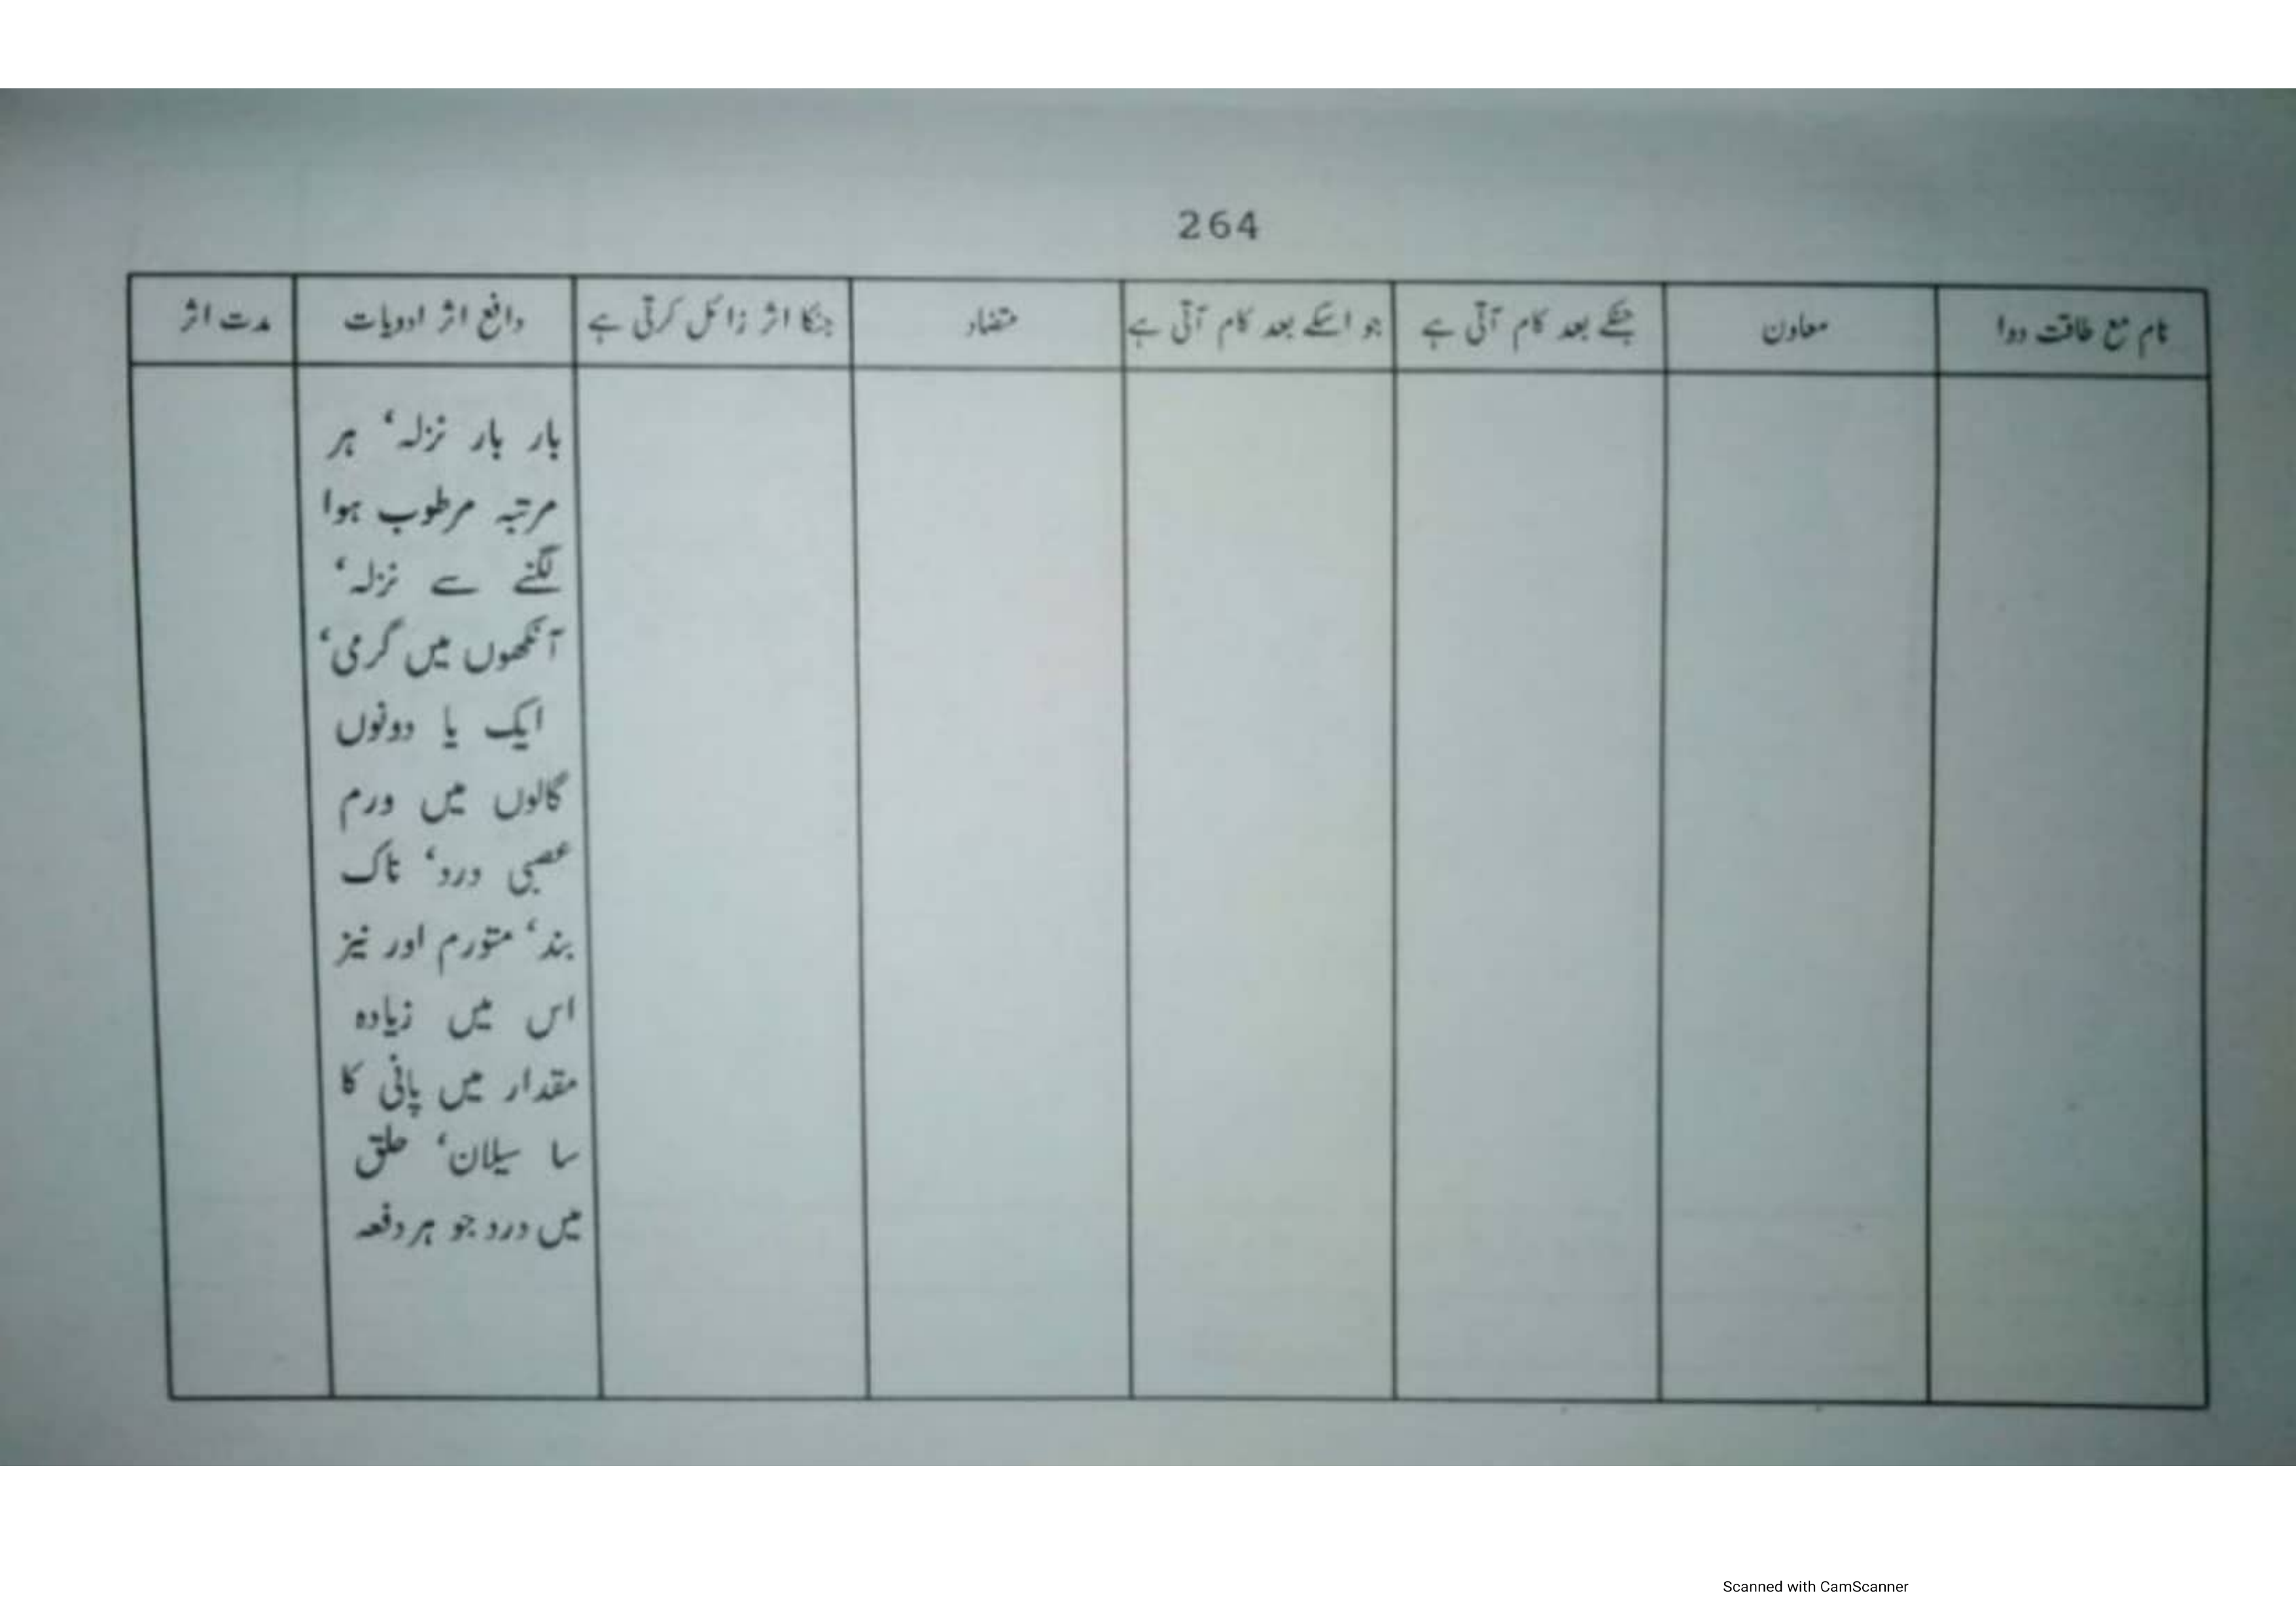 264
نام مع طاقت دوا
معاون
جنکے بعد کام آتی ہے
جو اسکے بعد کام آتی ہے
متضاد
جنکا اثر زائل کرتی ہے
دافع اثر ادویات
مدت اثر
بار بار نزلہ‘ ہر
مرتبہ مرطوب ہوا
لگنے سے نزلہ‘
آنکھوں میں گرمی‘
ایک یا دونوں
گالوں میں ورم
عصبی درد‘ ناک
بند‘ متورم اور نیز
اس میں زیادہ
مقدار میں پانی کا
سا سیلان‘ حلق
میں درد جو ہر دفعہ
Scanned with CamScanner